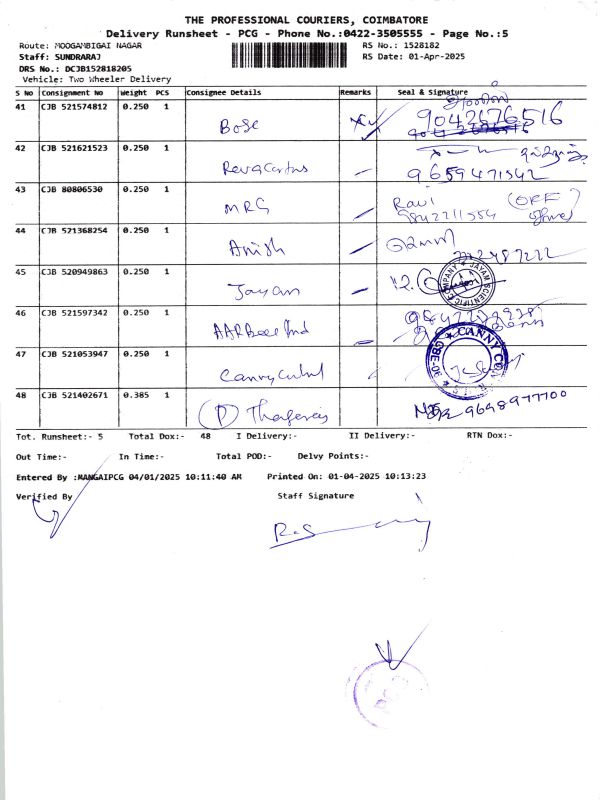 THE PROFESSIONAL COURIERS, COIMBATORE
Delivery Runsheet - PCG - Phone No.:0422-3505555 - Page No.:5
Route: MOOGAMBIGAI NAGAR RS No.: 1528182
Staff: SUNDRARAJ RS Date: 01-Apr-2025
DRS No.: DCJB152818205
Vehicle: Two Wheeler Delivery
S No Consignment No Weight PCS Consignee Details Remarks Seal & Signature
41 CJB 521574812 0.250 1 Bose 9042676516
42 CJB 521621523 0.250 1 9659471542
43 CJB 80806530 0.250 1 MRG Ravi
44 CJB 521368254 0.250 1 Anish
45 CJB 520949863 0.250 1 Jayan JAYAM SCIENTIFIC COMPANY
46 CJB 521597342 0.250 1
47 CJB 521053947 0.250 1 CANNY
48 CJB 521402671 0.385 1 (P) 9698977700
Tot. Runsheet:- 5 Total Dox:- 48 I Delivery:- II Delivery:- RTN Dox:-
Out Time:- In Time:- Total POD:- Delvy Points:-
Entered By :MANGAIPCG 04/01/2025 10:11:40 AM Printed On: 01-04-2025 10:13:23
Verified By Staff Signature
PCG